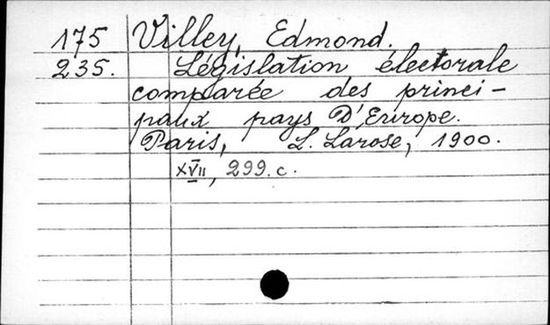 175 Villey, Edmond.
235. Législation électorale
comparée des princi-
paux pays D'Europe.
Paris, L. Larose, 1900.
XVII, 299. c.